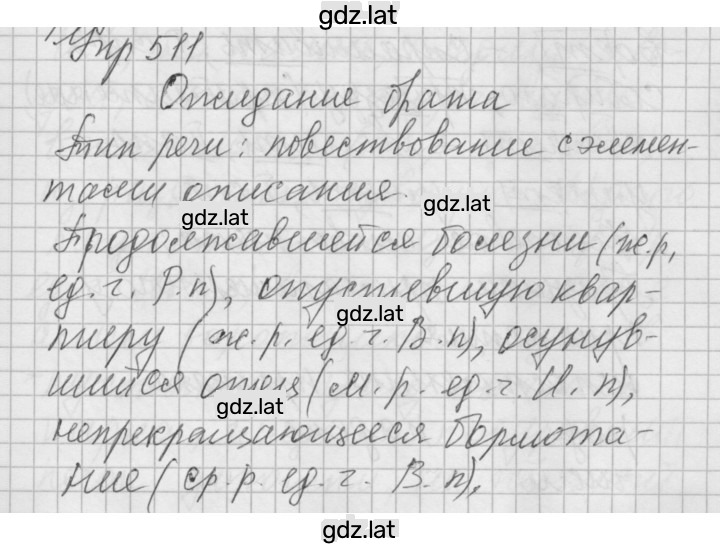 gdz.lat
Упр 511
Ожидание брата
Тип речи: повествование с элемен-
тами описания.
gdz.lat
gdz.lat
Продолжавшейся болезни (ж.р,
ед. ч. Р.п), опустевшую квар-
gdz.lat
тиру (ж. р. ед. ч. В. п), осунув-
шийся отца (м. р. ед. ч. И. п),
gdz.lat
непрекращающееся бормота-
ние (ср. р. ед. ч. В. п),
gdz.lat